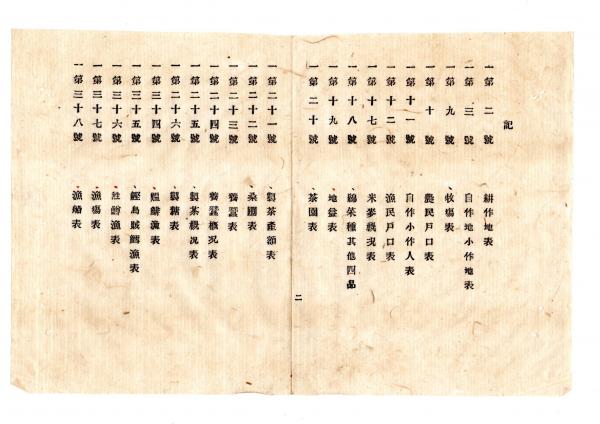 記
一第二號 耕作地表
一第三號 自作地小作地表
一第九號 牧場表
一第十號 農民戸口表
一第十一號 自作小作人表
一第十二號 漁民戸口表
一第十七號 米麥概況表
一第十八號 菜種其他四品
一第十九號 地益表
一第二十號 茶園表
二
一第二十一號 製茶產額表
一第二十二號 桑園表
一第二十三號 養蠶表
一第二十四號 養蠶概況表
一第二十五號 製茶概況表
一第二十六號 製糖表
一第三十四號 鰮鯡漁表
一第三十五號 鰹烏賊鱈漁表
一第三十六號 鮭鱒漁表
一第三十七號 漁場表
一第三十八號 漁船表